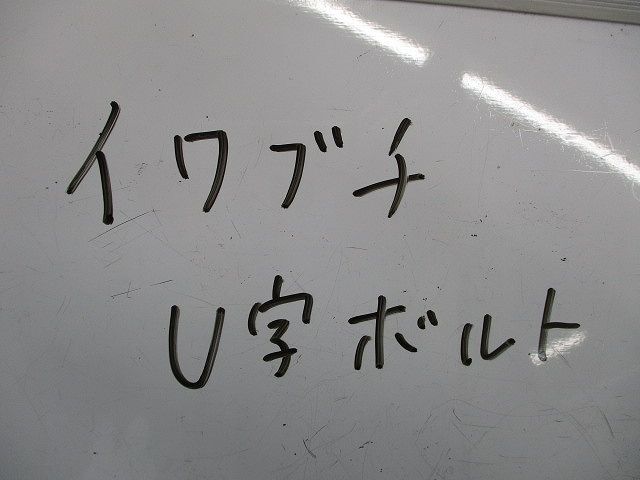 イワブチ
U字ボルト